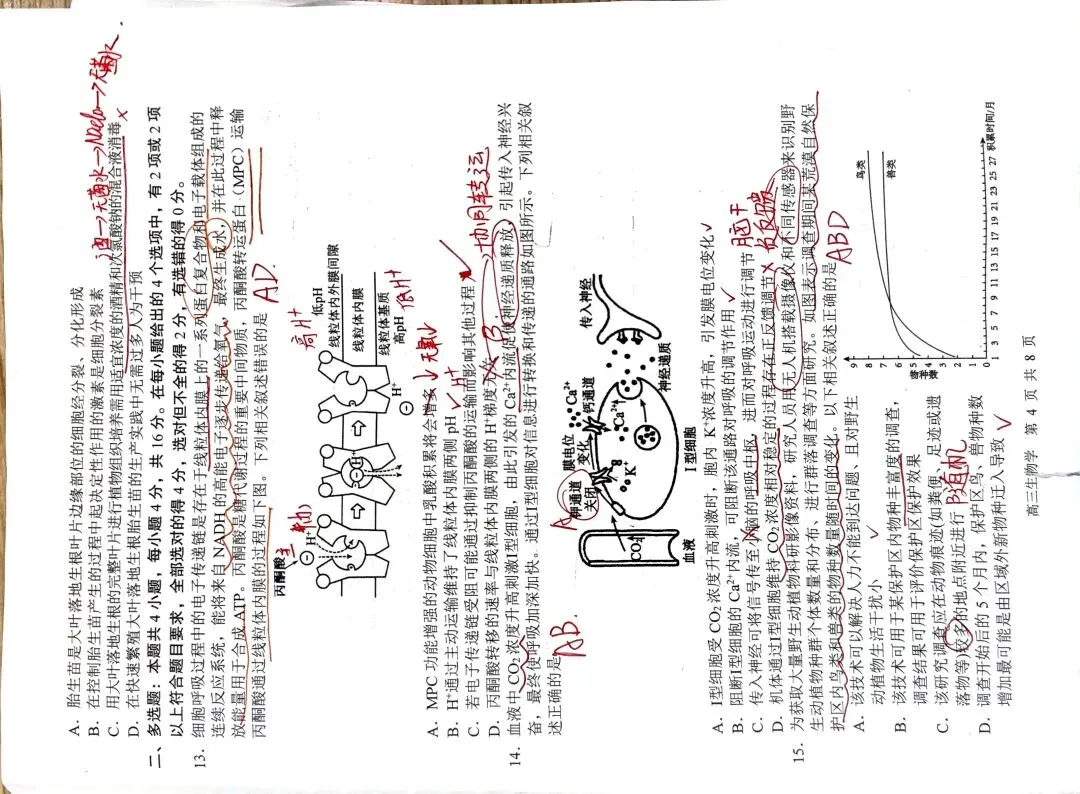 A. 胎生苗是大叶落地生根叶片边缘部位的细胞经分裂、分化形成
B. 在控制胎生苗产生的过程中起决定性作用的激素是细胞分裂素
酒→无菌水→NaClO→无菌水.
C. 用大叶落地生根的完整叶片进行植物组织培养需用适宜浓度的酒精和次氯酸钠的混合液消毒 ×
D. 在快速繁殖大叶落地生根胎生苗的生产实践中无需过多人为干预
二、多选题：本题共 4 小题，每小题 4 分，共 16 分。在每小题给出的 4 个选项中，有 2 项或 2 项
以上符合题目要求，全部选对的得 4 分，选对但不全的得 2 分，有选错的得 0 分。
13. 细胞呼吸过程中的电子传递链是存在于线粒体内膜上的一系列蛋白复合物和电子载体组成的
连续反应系统，能将来自 NADH 的高能电子逐步传递给氧气，最终生成水，并在此过程中释
放能量用于合成 ATP。丙酮酸是糖代谢过程的重要中间物质，丙酮酸转运蛋白（MPC）运输
丙酮酸通过线粒体内膜的过程如下图。下列相关叙述错误的是 AD.
丙酮酸
H⁺
H⁺
高H⁺
低pH
线粒体内外膜间隙
线粒体内膜
线粒体基质
高pH 低H⁺
A. MPC 功能增强的动物细胞中乳酸积累将会增多
B. H⁺通过主动运输维持了线粒体内膜两侧 pH
C. 若电子传递链受阻可能通过抑制丙酮酸的运输而影响其他过程
D. 丙酮酸转移的速率与线粒体内膜两侧的 H⁺梯度无关 协同转运
14. 血液中 CO₂ 浓度升高刺激I型细胞，由此引发的 Ca²⁺内流促使神经递质释放，引起传入神经兴
奋，最终使呼吸加深加快。通过I型细胞对信息进行转换和传递的通路如图所示。下列相关叙
述正确的是 AB.
血液
CO₂
钾通道
关闭
K⁺
膜电位
变化
Ca²⁺
钙通道
Ca²⁺
I 型细胞
神经递质
传入神经
A. I型细胞受 CO₂ 浓度升高刺激时，胞内 K⁺浓度升高，引发膜电位变化 ✓
B. 阻断I型细胞的 Ca²⁺内流，可阻断该通路对呼吸的调节作用 ✓
C. 传入神经可将信号传至小脑的呼吸中枢，进而对呼吸运动进行调节 脑干
D. 机体通过I型细胞维持 CO₂ 浓度相对稳定的过程存在正反馈调节 × 负反馈
15. 为获取大量野生动植物科研影像资料，研究人员用无人机搭载摄像仪和不同传感器来识别野
生动植物种群个体数量和分布、进行群落调查等方面研究。如图表示调查期间某荒漠自然保
护区内鸟类和兽类的物种数量随时间的变化。以下相关叙述正确的是 ABD
A. 该技术可以解决人力不能到达问题、且对野生
动植物生活干扰小 ✓
B. 该技术可用于某保护区内物种丰富度的调查，
调查结果可用于评价保护区保护效果 ✓
C. 该研究调查应在动物痕迹(如粪便、足迹或遗
落物等)较多的地点附近进行 随机
D. 调查开始后的 5 个月内，保护区鸟、兽物种数
增加最可能是由区域外新物种迁入导致 ✓
鸟类
兽类
9
8
7
6
5
4
3
2
1
0
1 3 5 7 9 11 13 15 17 19 21 23 25 27 积累时间/月
高三生物学 第 4 页 共 8 页